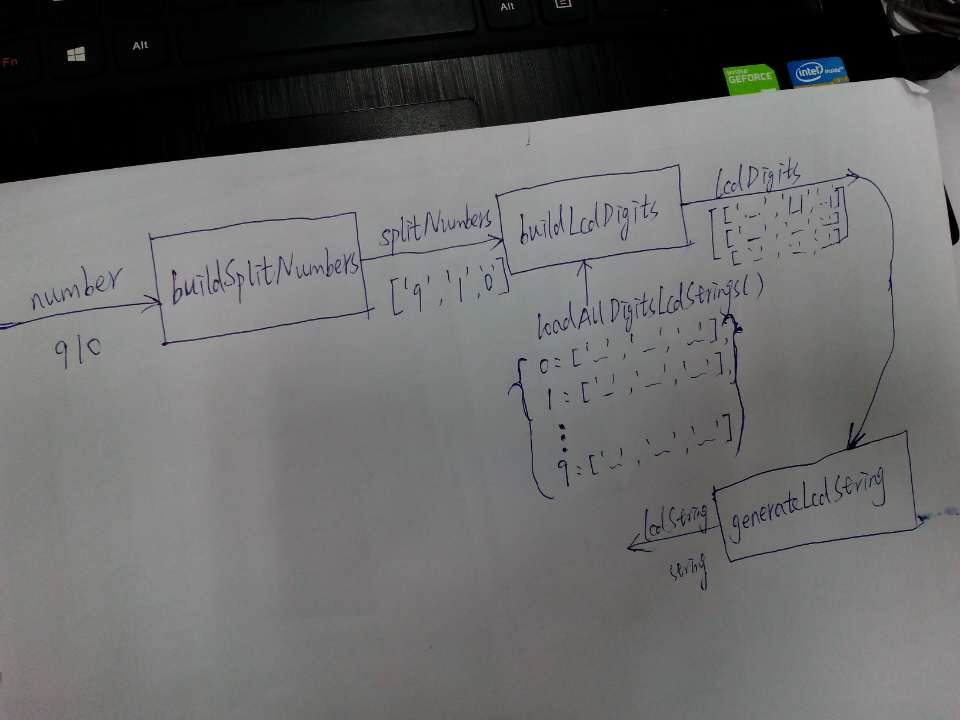 Fn
Alt
Alt
NVIDIA
GEFORCE
intel
inside
number
910
buildSplitNumbers
splitNumbers
['9','1','0']
buildLcdDigits
lcdDigits
loadAllDigitsLcdStrings()
0=['_','_','_'],
1=['_','_','_'],
9=['_','_','_']
generateLcdString
lcdString
string